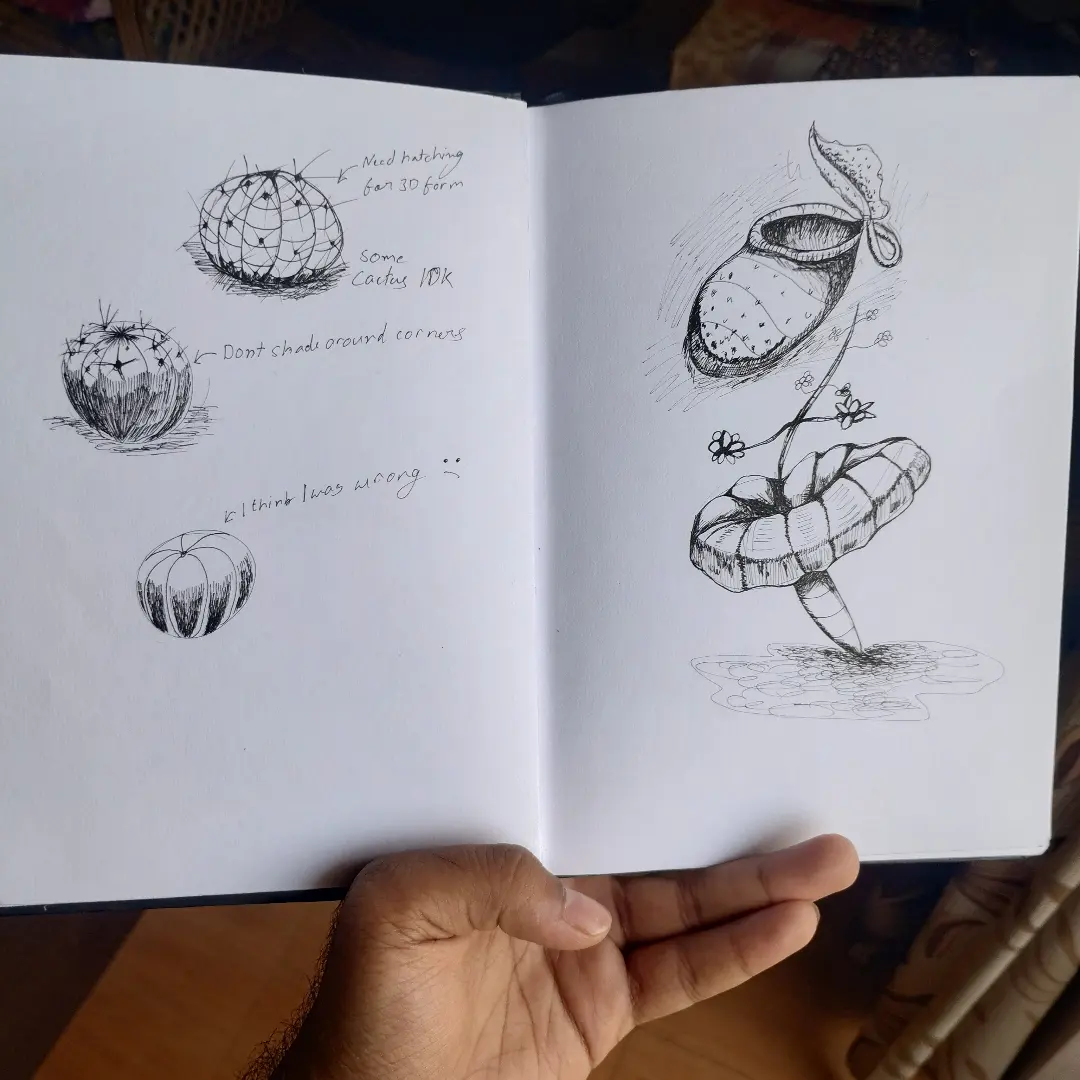 Need hatching
for 3D form
some
Cactus IDK
Dont shade around corners
I think I was wrong :(